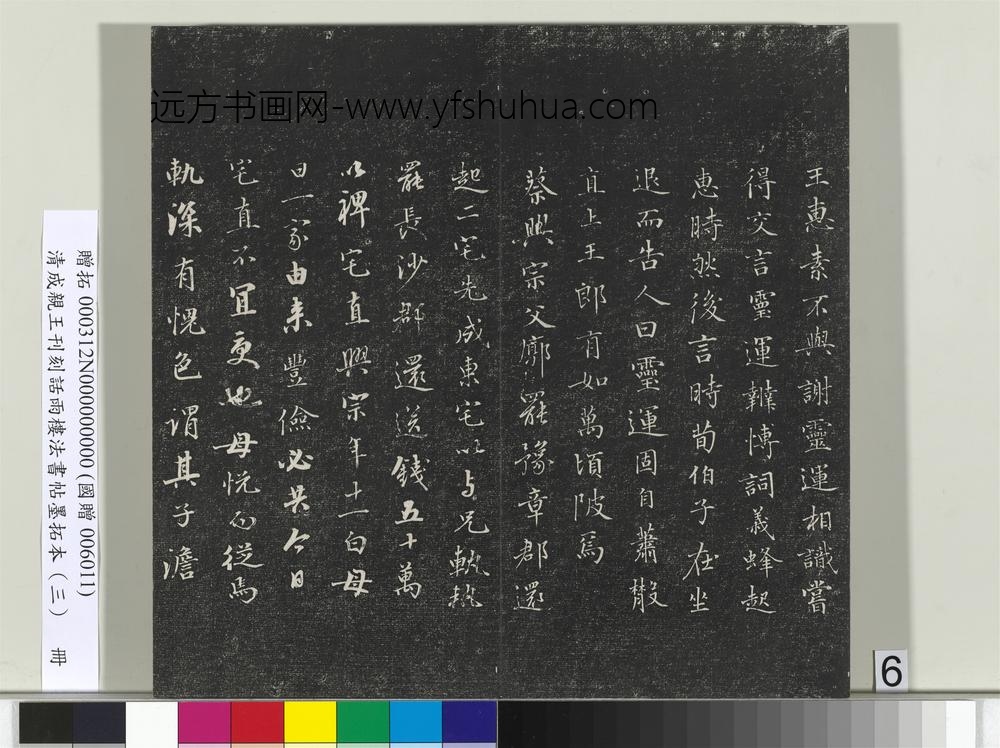 远方书画网-www.yfshuhua.com
王惠素不與謝靈運相識嘗
得交言靈運辯博詞義蜂起
惠時然後言時荀伯子在坐
退而告人曰靈運固自蕭散
直上王郎有如萬頃陂焉
蔡興宗父廓罷豫章郡還
起二宅先成東宅以与兄軌
罷長沙郡還送錢五十萬
以裨宅直興宗年十一白母
曰一家由来豐儉必共今日
宅直不宜受也母悅而從焉
軌深有愧色謂其子澹
贈拓 000312N000000000 (國贈 006011)
清成親王刊刻話雨樓法書帖墨拓本(三) 冊
6